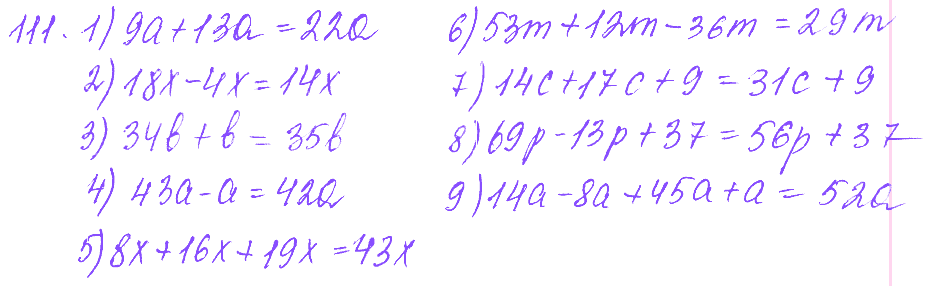 111. 1) 9a + 13a = 22a
2) 18x - 4x = 14x
3) 34b + b = 35b
4) 43a - a = 42a
5) 8x + 16x + 19x = 43x
6) 53m + 12m - 36m = 29m
7) 14c + 17c + 9 = 31c + 9
8) 69p - 13p + 37 = 56p + 37
9) 14a - 8a + 45a + a = 52a